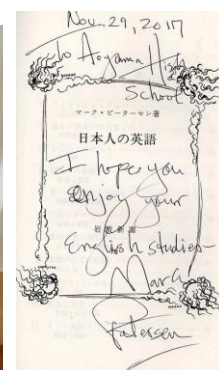 Nov. 29, 2017
To Aoyama High
School
マーク・ピーターセン著
日本人の英語
I hope you
enjoy your
岩波新書
English studies
Mark
Petersen